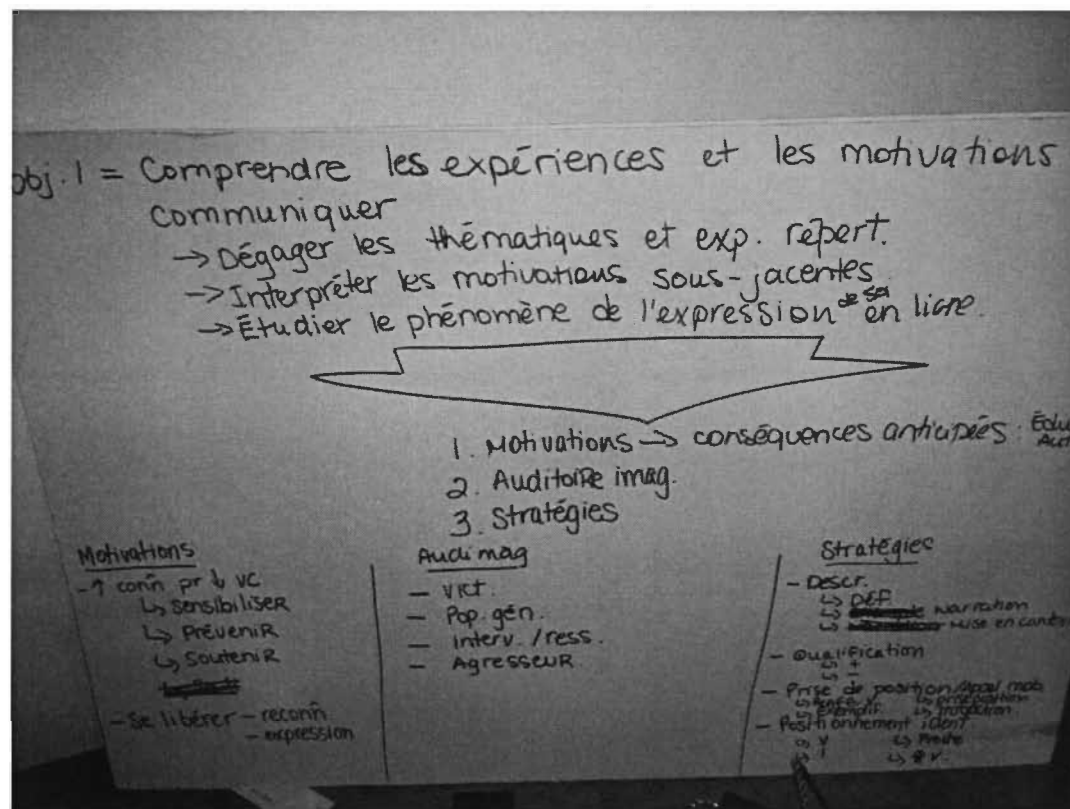 obj. 1 = Comprendre les expériences et les motivations
communiquer
→ Dégager les thématiques et exp. répert.
→ Interpréter les motivations sous-jacentes
→ Étudier le phénomène de l'expression de soi en ligne.
1. Motivations → conséquences anticipées
2. Auditoire imag.
3. Stratégies
Motivations
- ↑ conn pr ↓ VC
↳ Sensibiliser
↳ Prévenir
↳ Soutenir
- Se libérer - reconn.
- expression
Audimag
- Vict.
- Pop. gén.
- Interv. / ress.
- Agresseur
Stratégies
- Descr.
↳ DÉF.
↳ Narration
↳ Mise en cont
- Qualification
↳ +
↳ -
- Prise de position/Appel mob
- Positionnement ident